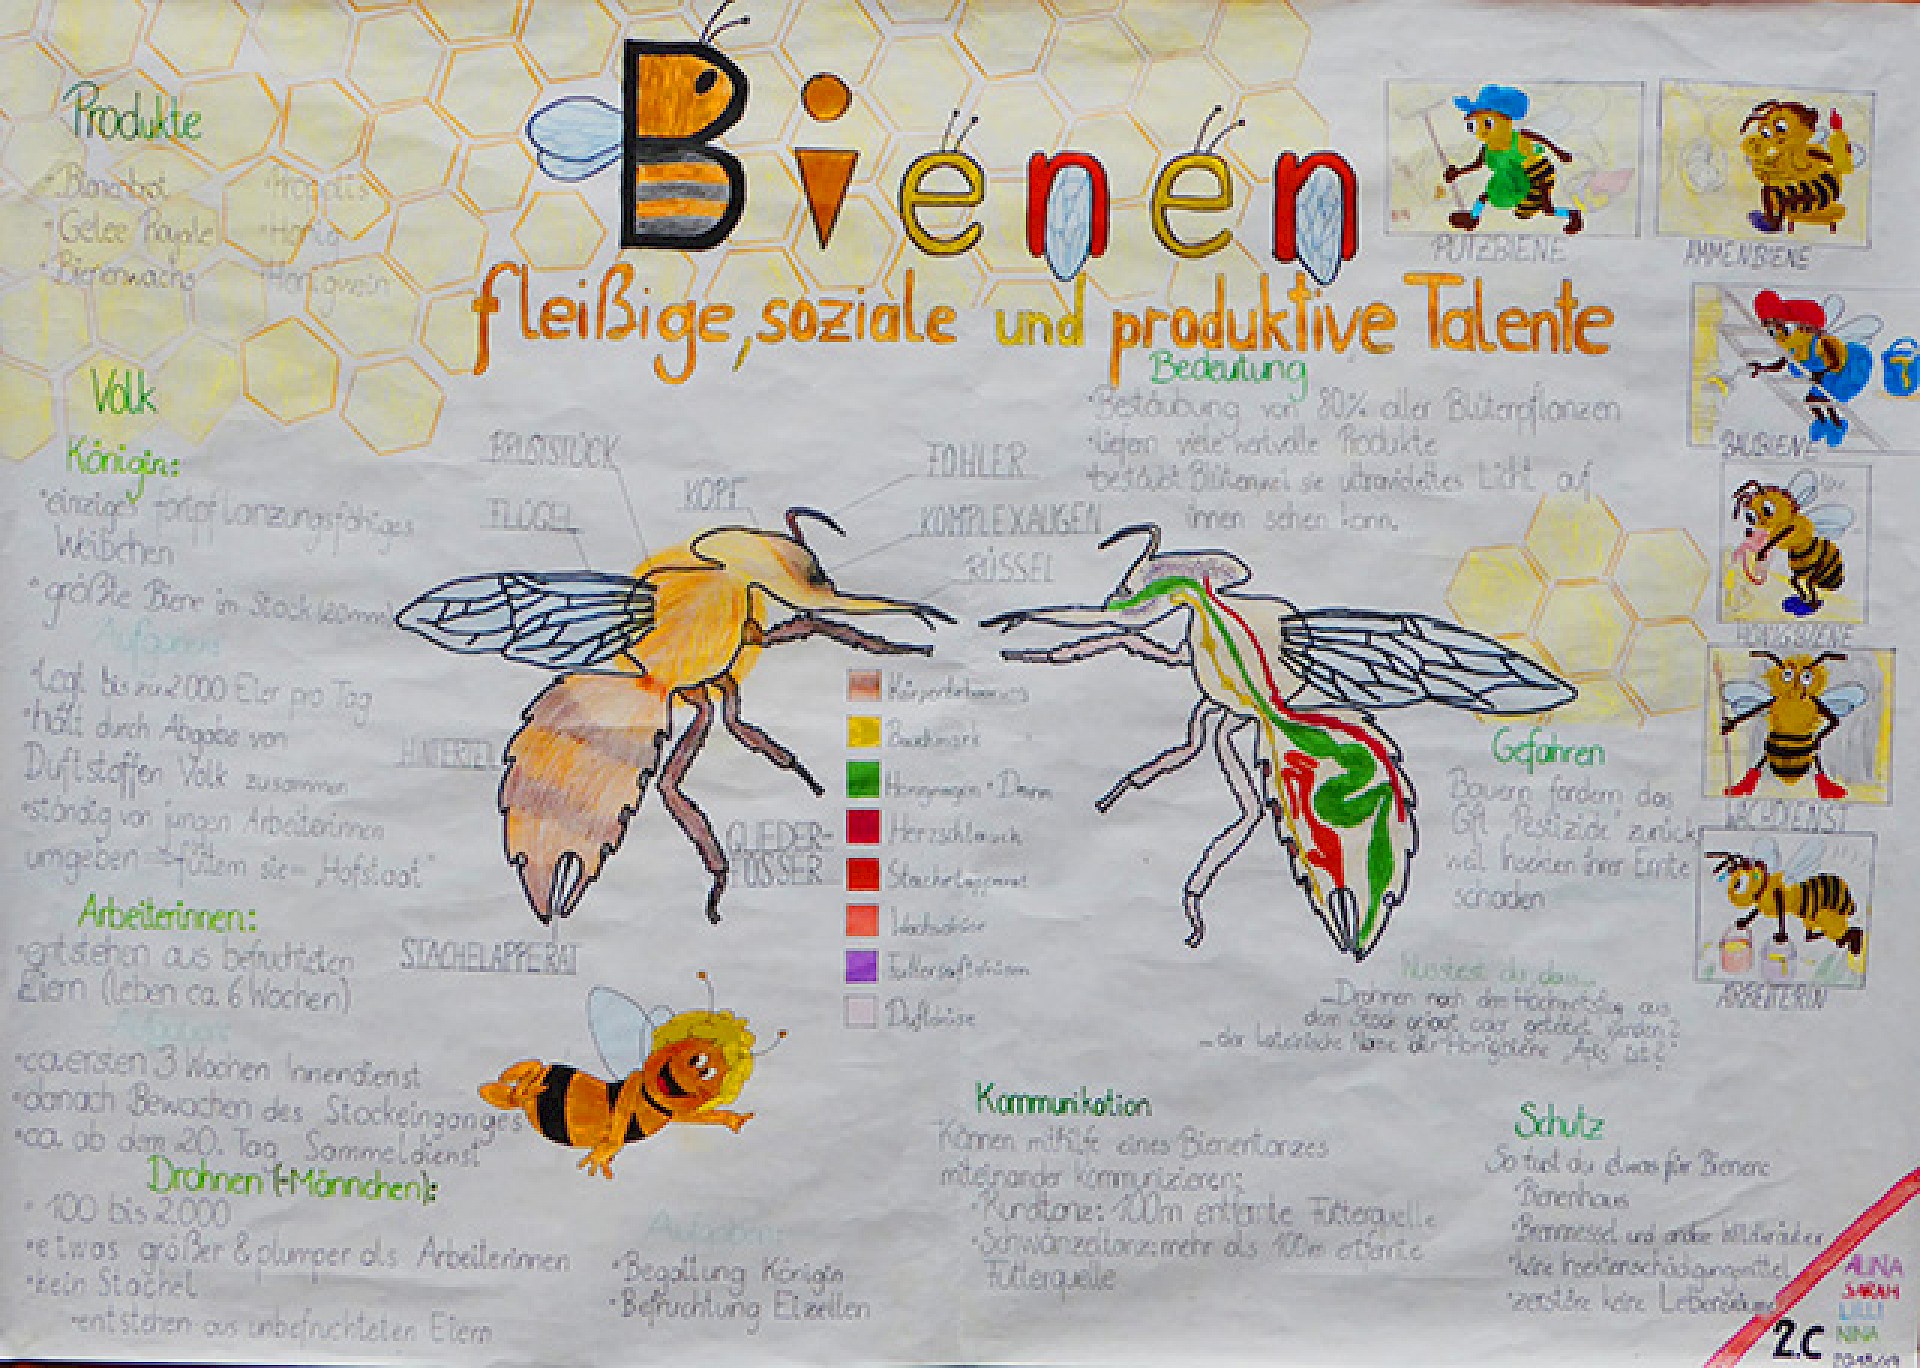 Bienen
fleißige, soziale und produktive Talente
Produkte
• Bienenbrot
• Gelee Royale
• Bienenwachs
• Propolis
• Honig
• Honigwein
Volk
Königin:
• einziges fortpflanzungsfähiges
Weibchen
• größte Biene im Stock (20mm)
Aufgaben:
• legt bis zu 2000 Eier pro Tag
• hält durch Abgabe von
Duftstoffen Volk zusammen
• ständig von jungen Arbeiterinnen
umgeben ⇒ füttern sie = „Hofstaat"
Arbeiterinnen:
• entstehen aus befruchteten
Eiern (leben ca. 6 Wochen)
Aufgaben:
• ca. ersten 3 Wochen Innendienst
• danach Bewachen des Stockeinganges
• ca. ab dem 20. Tag Sammeldienst
Drohnen (=Männchen):
• 100 bis 2.000
• etwas größer & plumper als Arbeiterinnen
• kein Stachel
• entstehen aus unbefruchteten Eiern
Aufgaben:
• Begattung Königin
• Befruchtung Eizellen
BRUSTSTÜCK
FLÜGEL
KOPF
FÜHLER
KOMPLEXAUGEN
RÜSSEL
HINTERTEIL
GLIEDER-
FÜSSER
STACHELAPPERAT
Bauchmark
Honigmagen + Darm
Herzschlauch
Stachelapparat
Wachsdrüse
Futtersaftdrüsen
Duftdrüse
Bedeutung
• Bestäubung von 80% aller Blütenpflanzen
• liefern viele wertvolle Produkte
• bestäubt Blüten, weil sie ultraviolettes Licht auf
ihnen sehen kann.
Gefahren
Bauern fordern das
Gift „Pestizide" zurück
weil Insekten ihrer Ernte
schaden
Wusstest du, dass...
...Drohnen nach dem Hochzeitsflug aus
dem Stock gejagt oder getötet werden?
...der lateinische Name der Honigbiene „Apis" ist?
Kommunikation
Können mithilfe eines Bienentanzes
miteinander kommunizieren:
• Rundtanz: 100m entfernte Futterquelle
• Schwänzeltanz: mehr als 100m entfernte
Futterquelle
Schutz
So tust du etwas für Bienen:
• Bienenhaus
• Brennnessel und andere Wildkräuter
• keine Insektenschädigungsmittel
• zerstöre keine Lebensräume
PUTZBIENE
AMMENBIENE
BAUBIENE
HONIGBIENE
WACHDIENST
ARBEITERIN
ALINA
SARAH
LILLI
NINA
2.C